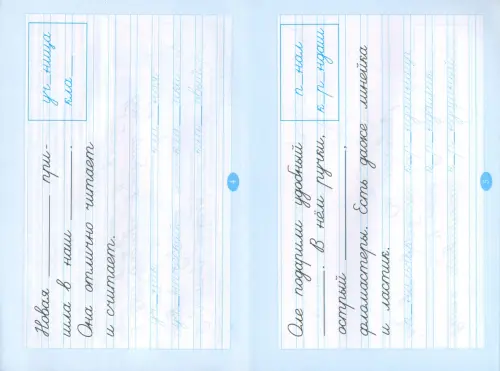 уч_ница
кла_
Новая ________ при-
шла в наш ________.
Она отлично читает
и считает.
4
п_нал
к_р_ндаш
Оле подарили удобный
________. В нём ручки,
острый ________,
фломастеры. Есть даже линейка
и ластик.
3